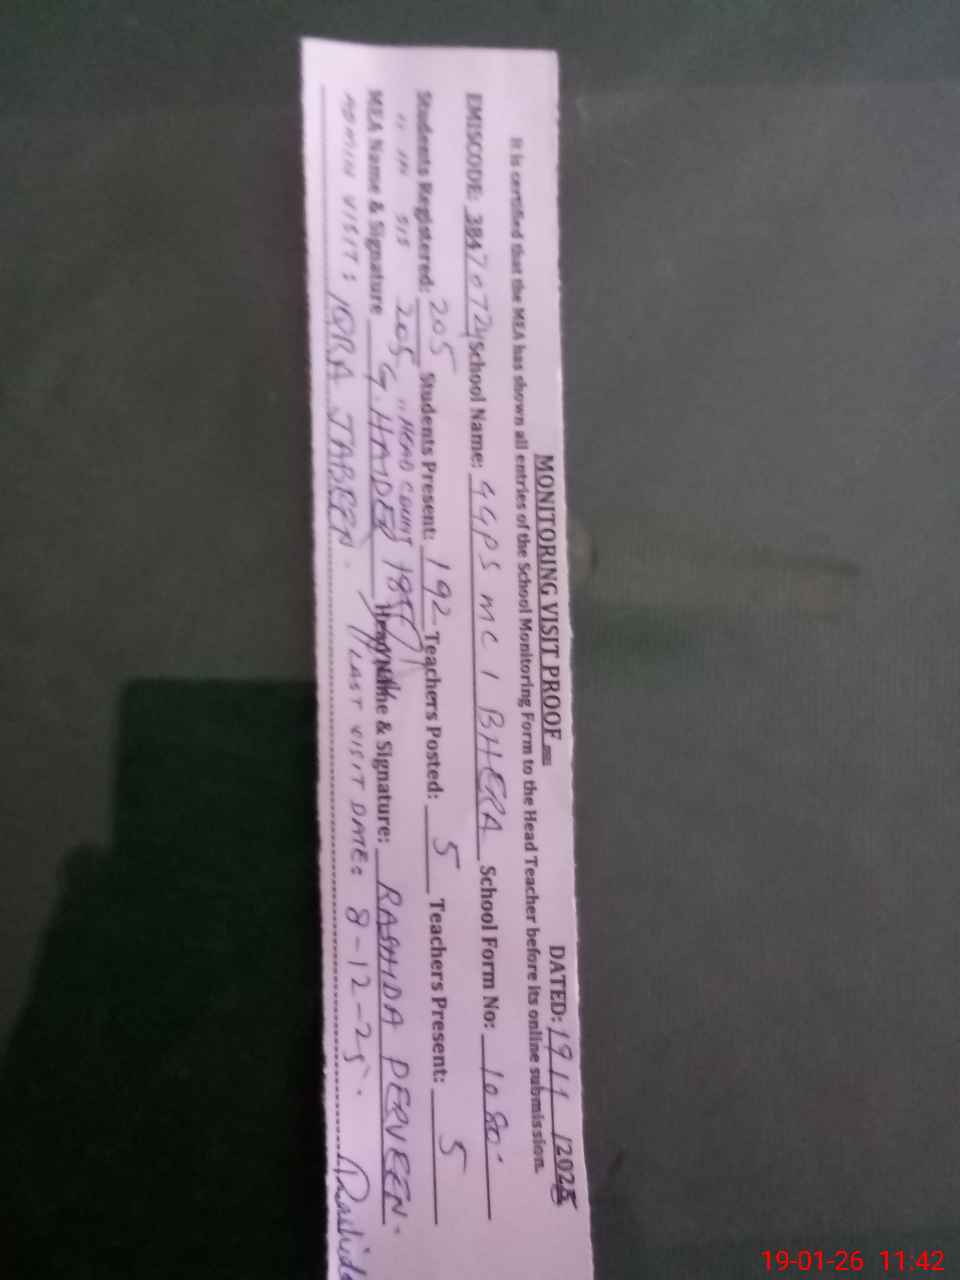 MONITORING VISIT PROOF DATED: 19/1/202
It is certified that the MEA has shown all entries of the School Monitoring Form to the Head Teacher before its online submission.
EMISCODE: 38470724 School Name: GGPS MC 1 BHERA School Form No: 1080
Students Registered: 205 Students Present: 192 Teachers Posted: 5 Teachers Present: 5
" IN SIS 205 " HEAD COUNT
MEA Name & Signature G. HAIDER & Signature: RASHIDA PERVEEN.
ADMIN VISIT: IQRA JABEEN. LAST VISIT DATE: 8-12-25.
Rashida
19-01-26 11:42